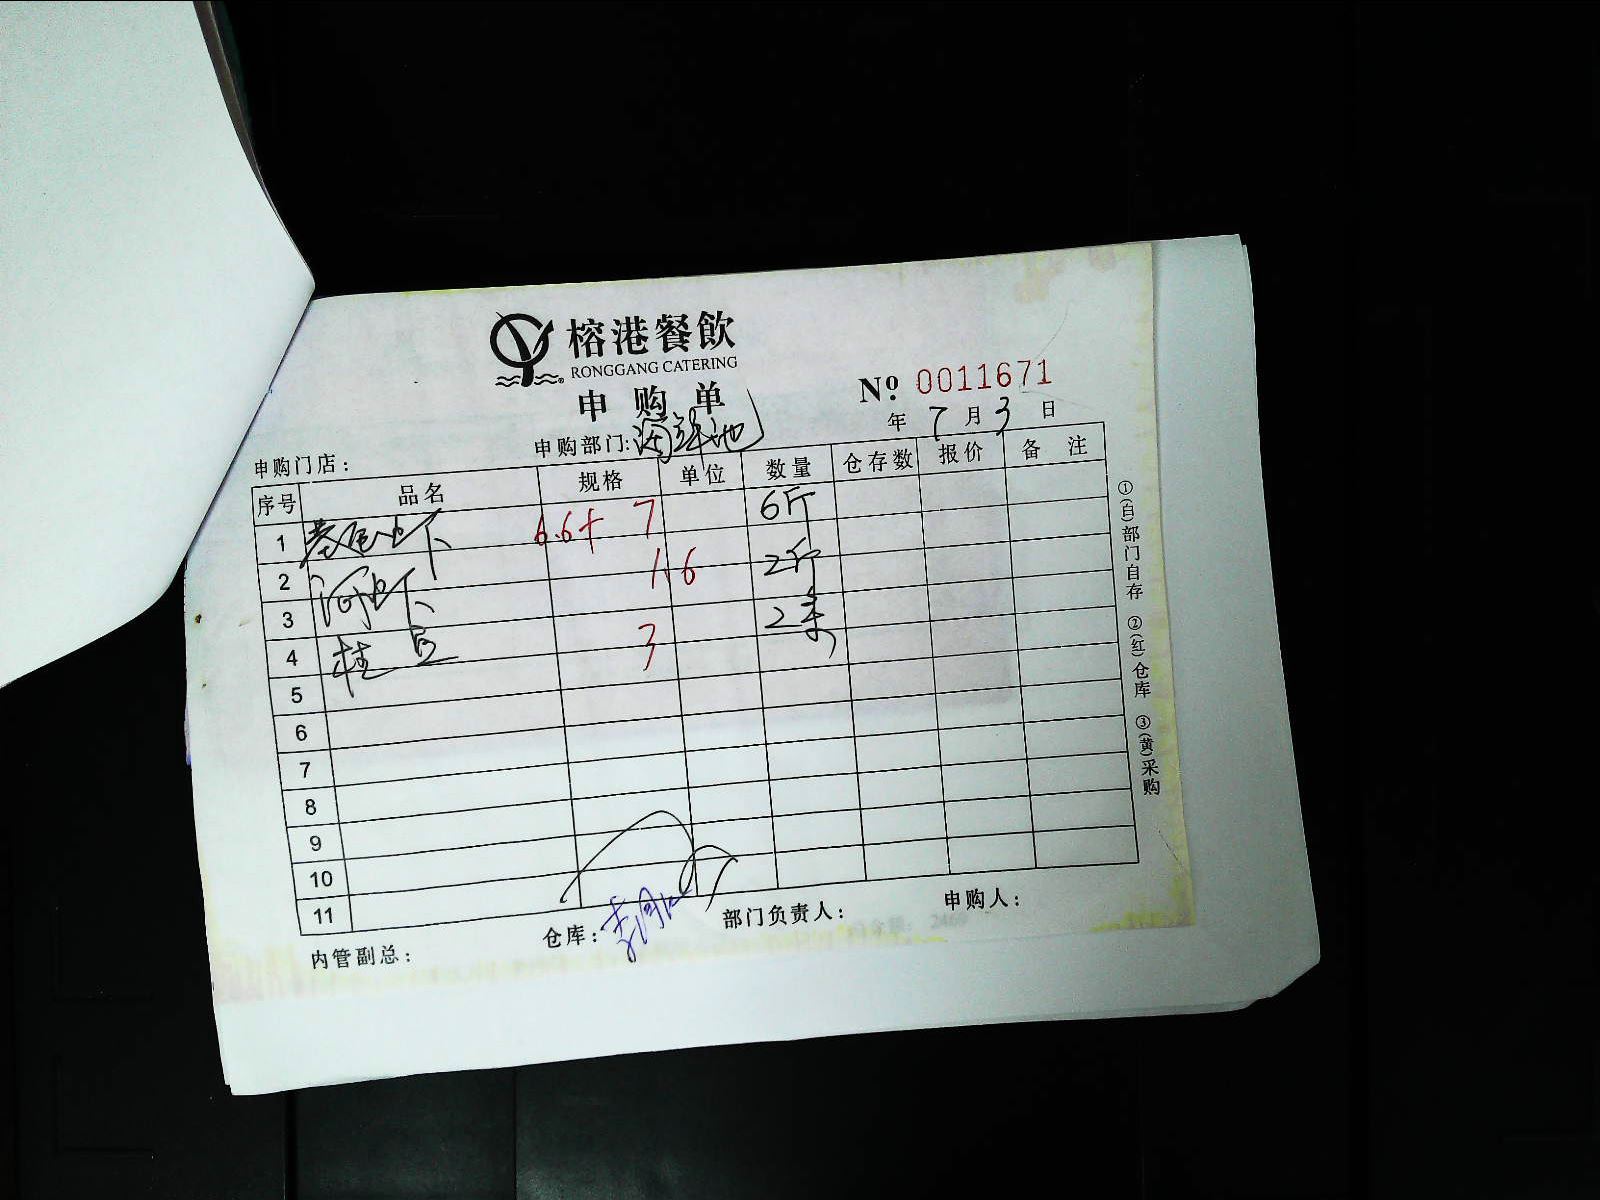 榕港餐飲
RONGGANG CATERING
申购单
№ 0011671
年 7 月 3 日
申购门店： 申购部门: 海鲜池
序号 品名 规格 单位 数量 仓存数 报价 备注
1 基尾虾 6.6+ 7 6斤
2 河虾 1.6 2斤
3 2条
4 桂鱼 3
5
6
7
8
9
10
11
内管副总： 仓库： 部门负责人： 申购人：
①(白)部门自存 ②(红)仓库 ③(黄)采购